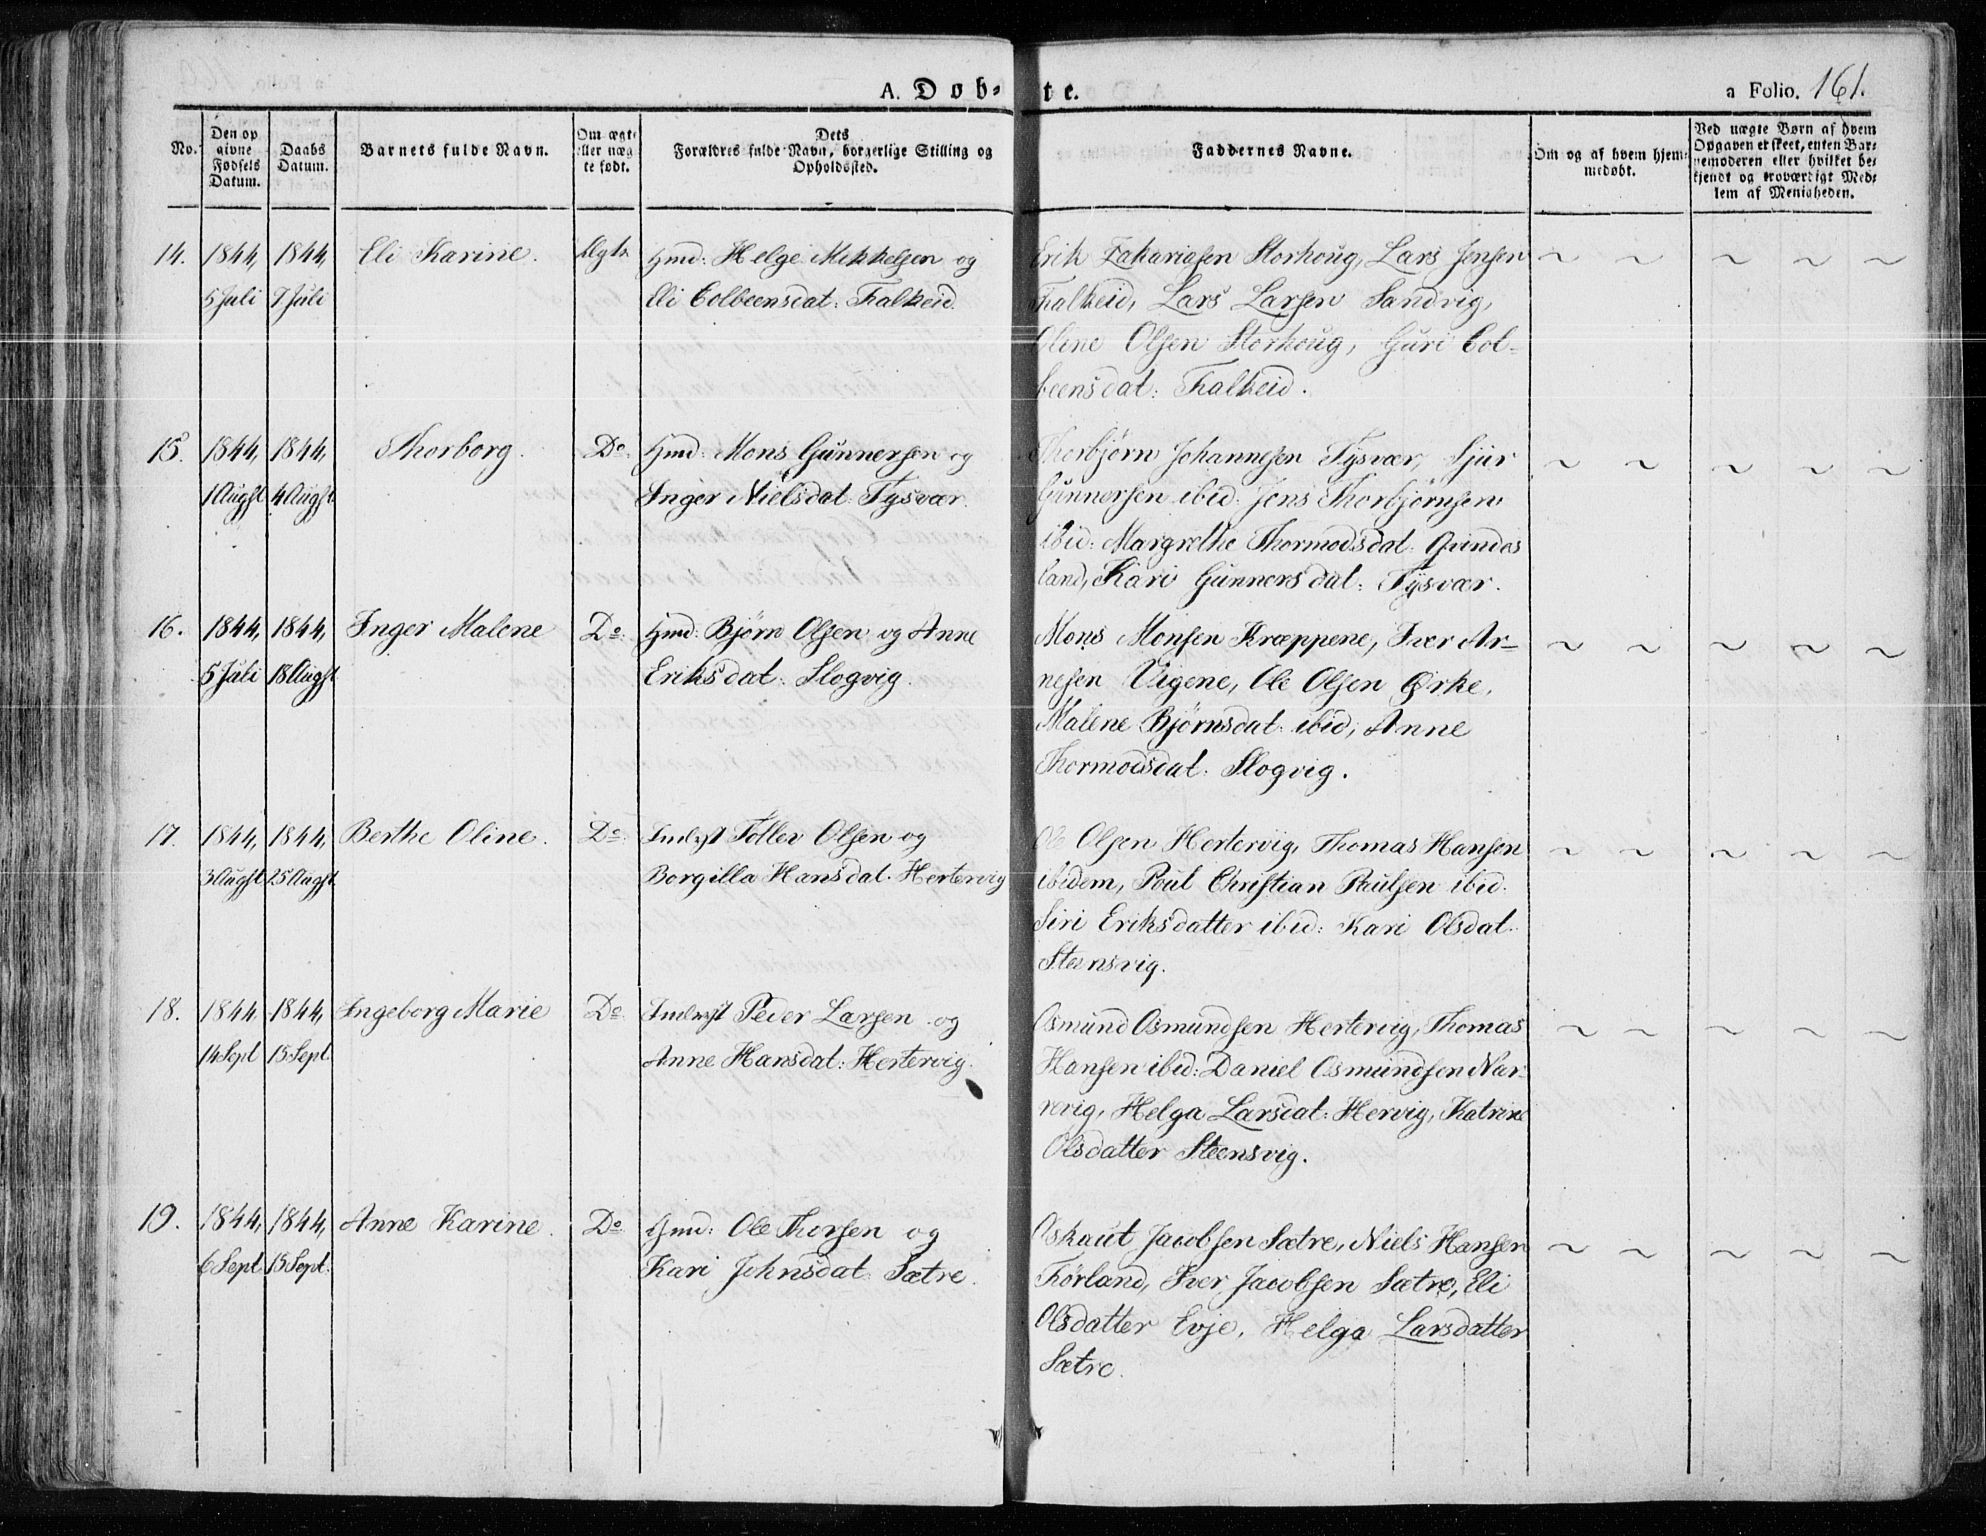 A. Döb-te.
a Folio. 161.
No.
Den op
givne
Fødsels
Datum.
Daabs
Datum.
Barnets fulde Navn.
Om ægte
eller uæg
te født.
Dets
Forældres fulde Navn, borgerlige Stilling og
Opholdssted.
Faddernes Navne.
Om og af hvem hjem-
medøbt.
Ved uægte Børn af hvem
Opgaven er skeet, enten Bar-
nemoderen eller hvilket be-
kjendt og troværdigt Med-
lem af Menigheden.
14. 1844, 1844, Eli Karine. Ægte Gmd: Helge Mikkelsen og
5 Juli 7 Juli Eli Colbeensdat: Falkeid.
Erik Zakariasen Storhoug, Lars Jensen
Falkeid, Lars Larsen Sandvig,
Oline Olsen Storhoug, Guri Col-
beensdat: Falkeid.
15. 1844, 1844, Thorborg. Do Gmd: Mons Gunnersen og
1 Augst 4 Augst Inger Nielsdat: Tysvær.
Thorbjørn Johannesen Tysvær, Sjur
Gunnersen ibid: Jens Thorbjørnsen
ibid: Margrethe Thormodsdat: Grindes
land, Kari Gunnersdat: Tysvær.
16. 1844, 1844, Inger Malene Do: Gmd: Bjørn Olsen og Anne
5 Juli 18 Augst Eriksdat: Slogvig.
Mons Monsen Kræppene, Iver Ar-
nesen Vigene, Ole Olsen Ørke,
Malene Bjørnsdat: ibid, Anne
Thormodsdat: Slogvig.
17. 1844, 1844, Berthe Oline. Do: Indst Tollev Olsen og
3 Augst 25 Augst Borgilla Hansdat. Hertervig
Ole Olsen Hertervig, Thomas Hansen
ibidem, Poul Christian Paulsen ibid.
Siri Eriksdatter ibid: Kari Olsdat.
Steensvig.
18. 1844 1844, Ingeborg Marie Do: Indst Peder Larsen og
14 Sept 15 Sept Anne Hansdat: Hertervig.
Osmund Osmundsen Hertervig, Thomas
Hansen ibid: Daniel Osmundsen Nar-
revig, Helga Larsdat: Hervig, Katrine
Olsdatter Steensvig.
19. 1844, 1844, Anne Karine. Do: Gmd: Ole Thorsen og
6 Sept 15 Sept. Kari Johnsdat: Sætre.
Oskaut Jacobsen Sætre, Niels Hansen
Førland, Iver Jacobsen Sætre, Eli
Olsdatter Evje, Helga Larsdatter
Sætre.